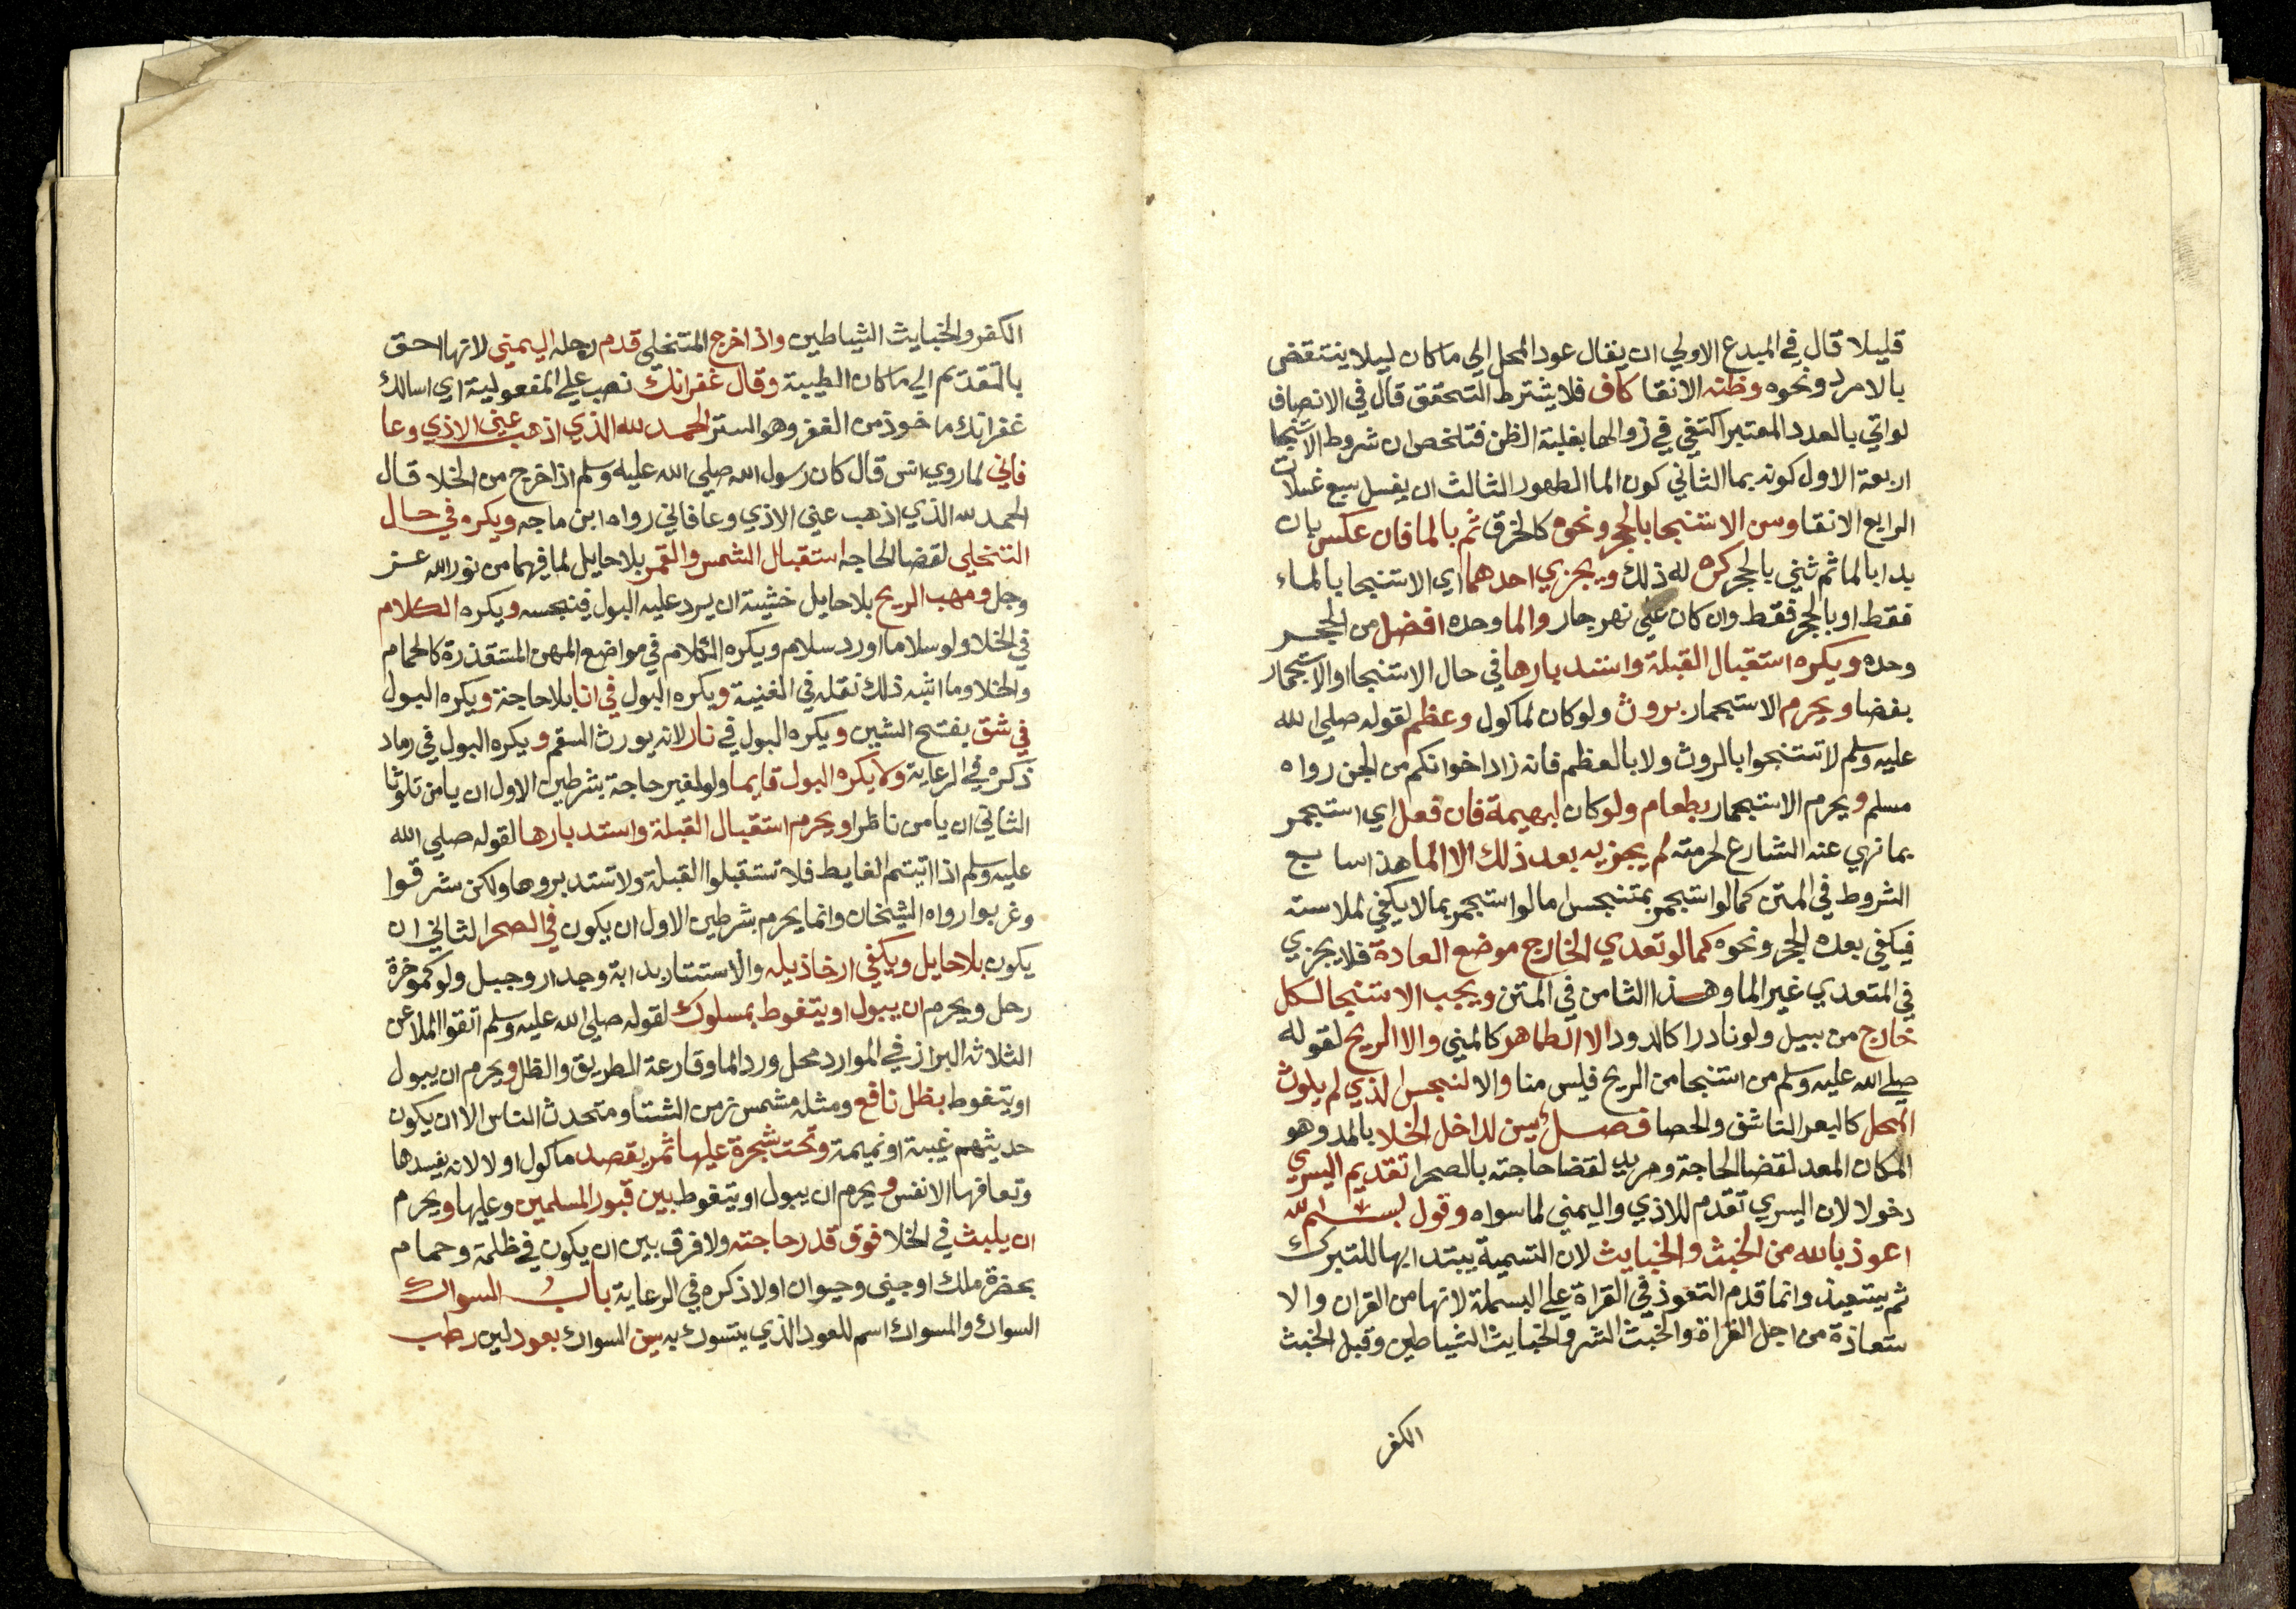 قليلا قال في المبدع الاولي ان يقال عود المحل الي ما كان ليلا ينتقض
بالامرد ونحوه وظنه الانقا كاف فلا يشترط التحقق قال في الانصاف
لواتي بالعدد المعتبر اكتفي في زوالها بغلبة الظن فتلخص ان شروط الاستنجا
اربعة الاول كونه بما الثاني كون الما الطهور الثالث ان يغسل سبع غسلات
الرابع الانقا وسن الاستنجا بالحجر ونحوه كالخرق ثم بالما فان عكس بان
بدا بالما ثم ثني بالحجر كره له ذلك ويجزي احدهما اي الاستنجا بالماء
فقط او بالحجر فقط وان كان علي نهر جار والما وحده افضل من الحجر
وحده ويكره استقبال القبلة واستدبارها في حال الاستنجا او الاستجمار
بفضا ويحرم الاستجمار بروث ولو كان لماكول وعظم لقوله صلي الله
عليه وسلم لا تستنجوا بالروث ولا بالعظم فانه زاد اخوانكم من الجن رواه
مسلم ويحرم الاستجمار بطعام ولو كان لبهيمة فان فعل اي استجمر
بما نهي عنه الشارع لحرمته لم يجزيه بعد ذلك الا الما هذا سابع
الشروط في المتن كما لو استجمر بمتنجس اما لو استجمر بما لا يكفي لملاسته
فيكفي بعده الحجر ونحوه كما لو تعدي الخارج موضع العادة فلا يجزي
في المتعدي غير الما وهذا الثامن في المتن ويجب الاستنجا لكل
خارج من سبيل ولو نادرا كالدود الا الطاهر كالمني والا الريح لقوله
صلي الله عليه وسلم من استنجا من الريح فليس منا والا لنجس الذي لم يلوث
المحل كالبعر الناشف والحصا فصل يسن لداخل الخلا بالمد وهو
المكان المعد لقضا الحاجة ومريد لقضا حاجته بالصحرا تقديم اليسري
دخولا لان اليسري تقدم للاذي واليمني لما سواه وقول بسم الله
اعوذ بالله من الخبث والخبايث لان التسمية يبتدا بها للتبرك
ثم يستعيذ وانما قدم التعوذ في القراة علي البسملة لانها من القران والا
ستعاذة من اجل القراة والخبث الشر والخبايث الشياطين وقيل الخبث
الكفر
الكفر والخبايث الشياطين واذا خرج المتخلي قدم رجله اليمني لانها احق
بالتقديم الي ماكان الطيبة وقال غفرانك نصب علي المفعولية اي اسالك
غفرانك ماخوذ من الغفر وهو الستر الحمد لله الذي اذهب عني الاذي وعا
فاني لما روي انس قال كان رسول الله صلي الله عليه وسلم اذا خرج من الخلا قال
الحمد لله الذي اذهب عني الاذي وعافاني رواه ابن ماجه ويكره في حال
التخلي لقضا الحاجه استقبال الشمس والقمر بلا حايل لما فيهما من نور الله عز
وجل ومهب الريح بلا حايل خشية ان يرد عليه البول فينجسه ويكره الكلام
في الخلا ولو سلاما او رد سلام ويكره الكلام في مواضع المهن المستقذرة كالحمام
والخلا وما اشبه ذلك نقله في الغنية ويكره البول في انا بلا حاجة ويكره البول
في شق بفتح الشين ويكره البول في نار لانه يورث السقم ويكره البول في رماد
ذكره في الرعاية ولا يكره البول قايما ولو لغير حاجة بشرطين الاول ان يامن تلوثا
الثاني ان يامن ناظرا ويحرم استقبال القبلة واستدبارها لقوله صلي الله
عليه وسلم اذا اتيتم الغايط فلا تستقبلوا القبلة ولا تستدبروها ولكن شرقوا
وغربوا رواه الشيخان وانما يحرم بشرطين الاول ان يكون في الصحرا الثاني ان
يكون بلا حايل ويكفي ارخا ذيله والاستتار بدابة وجدار وجبل ولو كموخرة
رحل ويحرم ان يبول او يتغوط بمسلوك لقوله صلي الله عليه وسلم اتقوا الملاعن
الثلاثه البراز في الموارد محل ورد الما وقارعة الطريق والظل ويحرم ان يبول
او يتغوط بظل نافع ومثله مشمس زمن الشتا ومتحدث الناس الا ان يكون
حديثهم غيبة او نميمة وتحت شجرة عليها ثمر يقصد ماكول او لا لانه يفسدها
وتعافها الانفس ويحرم ان يبول او يتغوط بين قبور المسلمين وعليها ويحرم
ان يلبث في الخلا فوق قدر حاجته ولا فرق بين ان يكون في ظلمة وحمام
بحضرة ملك او جني وحيوان اولا ذكره في الرعاية باب السواك
السواك والمسواك اسم للعود الذي يتسوك به يسن السواك بعود لين رطب